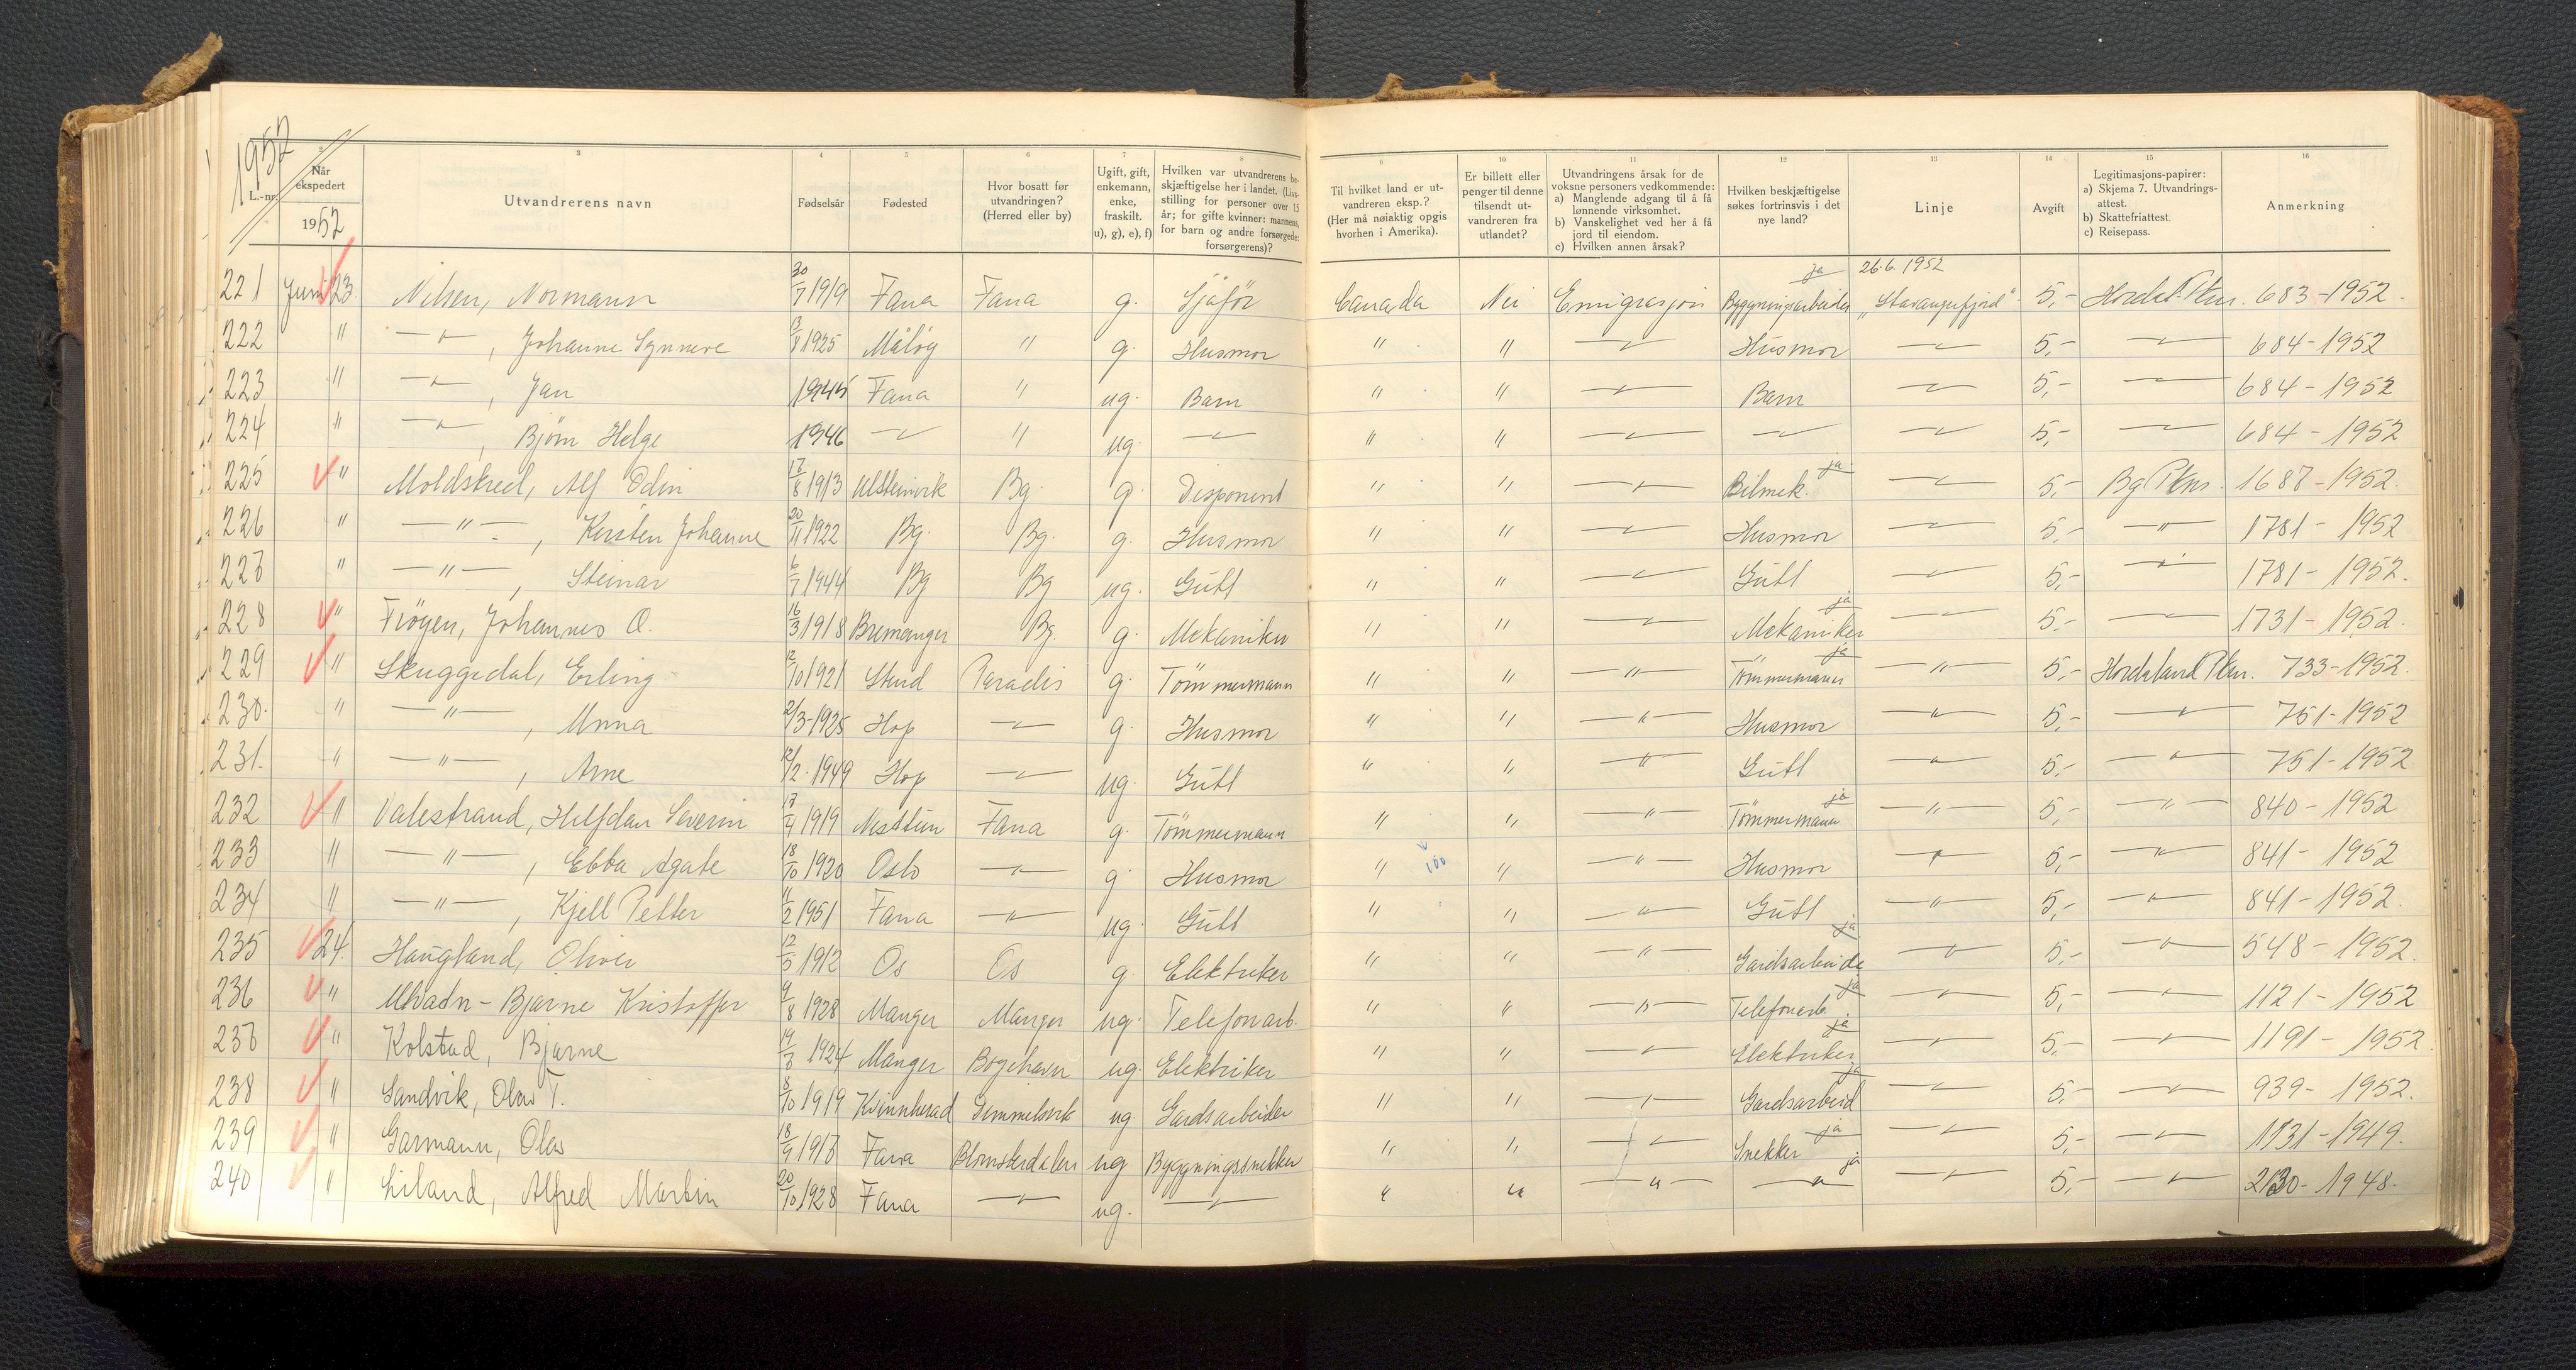 1952
L.-nr.
2 Når ekspedert 1952
3 Utvandrerens navn
4 Fødselsår
5 Fødested
6 Hvor bosatt før utvandringen? (Herred eller by)
7 Ugift, gift, enkemann, enke, fraskilt. u), g), e), f)
8 Hvilken var utvandrerens beskjæftigelse her i landet. (Livsstilling for personer over 15 år; for gifte kvinner: mannens, for barn og andre forsørgede: forsørgerens)?
9 Til hvilket land er utvandreren eksp.? (Her må nøiaktig opgis hvorhen i Amerika).
10 Er billett eller penger til denne tilsendt utvandreren fra utlandet?
11 Utvandringens årsak for de voksne personers vedkommende: a) Manglende adgang til å få lønnende virksomhet. b) Vanskelighet ved her å få jord til eiendom. c) Hvilken annen årsak?
12 Hvilken beskjæftigelse søkes fortrinsvis i det nye land?
13 Linje
14 Avgift
15 Legitimasjons-papirer: a) Skjema 7. Utvandrings-attest. b) Skattefriattest. c) Reisepass.
16 Anmerkning
ja 26.6.1952
221 Juni 23. Nilsen, Normann 30/7 1919 Fana Fana g. Sjåfør Canada Nei Emigrasjon Bygningsarbeider "Stavangerfjord" 5,- Hordal. Pkm. 683-1952.
222 " —"—, Johanne Synnøve 13/8 1925 Måløy " g. Husmor " " —"— Husmor —"— 5,- —"— 684-1952
223 " —"—, Jan 1945 Fana " ug. Barn " " —"— Barn —"— 5,- —"— 684-1952
224 " —"—, Bjørn Helge 1946 —"— " ug. —"— " " —"— —"— —"— 5,- —"— 684-1952
225 " Moldskred, Alf Odin 17/8 1913 Ulsteinvik Bg. g. Disponent " " —"— Bilmek. ja —"— 5,- Bg Pkm. 1687-1952.
226 " —"—, Kirsten Johanne 20/11 1922 Bg. Bg. g. Husmor " " —"— Husmor —"— 5,- —"— 1781-1952
227 " —"—, Steinar 6/7 1944 Bg Bg ug. Gutt " " —"— Gutt —"— 5,- —"— 1781-1952.
228 " Frøyen, Johannes O. 16/3 1918 Bremanger Bg. g. Mekaniker " " —"— Mekaniker ja —"— 5,- —"— 1731-1952.
229 " Skuggedal, Erling 12/10 1921 Stend Paradis g. Tømmermann " " —"— Tømmermann ja —"— 5,- Hordaland Pkm. 733-1952.
230. " —"—, Unna 2/3-1925 Hop —"— g. Husmor " " —"— Husmor —"— 5,- —"— 751-1952
231. " —"—, Arne 12/2-1949 Hop —"— ug. Gutt " " —"— Gutt —"— 5,- —"— 751-1952
232 " Valestrand, Hilfdan Severin 17/4 1919 Nesttun Fana g. Tømmermann " " —"— Tømmermann ja —"— 5,- —"— 840-1952
233 " —"—, Ebba Agate 18/10 1920 Oslo —"— g. Husmor " 100 " —"— Husmor —"— 5,- —"— 841-1952
234 " —"—, Kjell Petter 11/2 1951 Fana —"— ug. Gutt " " —"— Gutt —"— 5,- —"— 841-1952.
235 24. Haugland, Oliver 12/5 1912 Os Os g. Elektriker " " —"— Gardsarbeide ja —"— 5,- —"— 548-1952.
236 " Bjarne Kristoffer 9/8 1928 Manger Manger ug. Telefonarb. " " —"— Telefonarb. ja —"— 5,- —"— 1121-1952
237 " Kolstad, Bjarne 1924 Manger Bøgehavn ug. Elektriker " " —"— Elektriker ja —"— 5,- —"— 1191-1952.
238 " Sandvik, Olav T. 8/10 1919 Kvinnherad Gimmelsvik ug Gardsarbeider " " —"— Gardsarbeid ja —"— 5,- —"— 939-1952.
239 " Garmann, Olav 18/9 1917 Fana Blomsterdalen ug Bygningssnekker " " —"— Snekker ja —"— 5,- —"— 1131-1949.
240 " Liland, Alfred Martin 20/10 1928 Fana —"— ug. —"— " " —"— —"— ja —"— 5,- —"— 2130-1948.